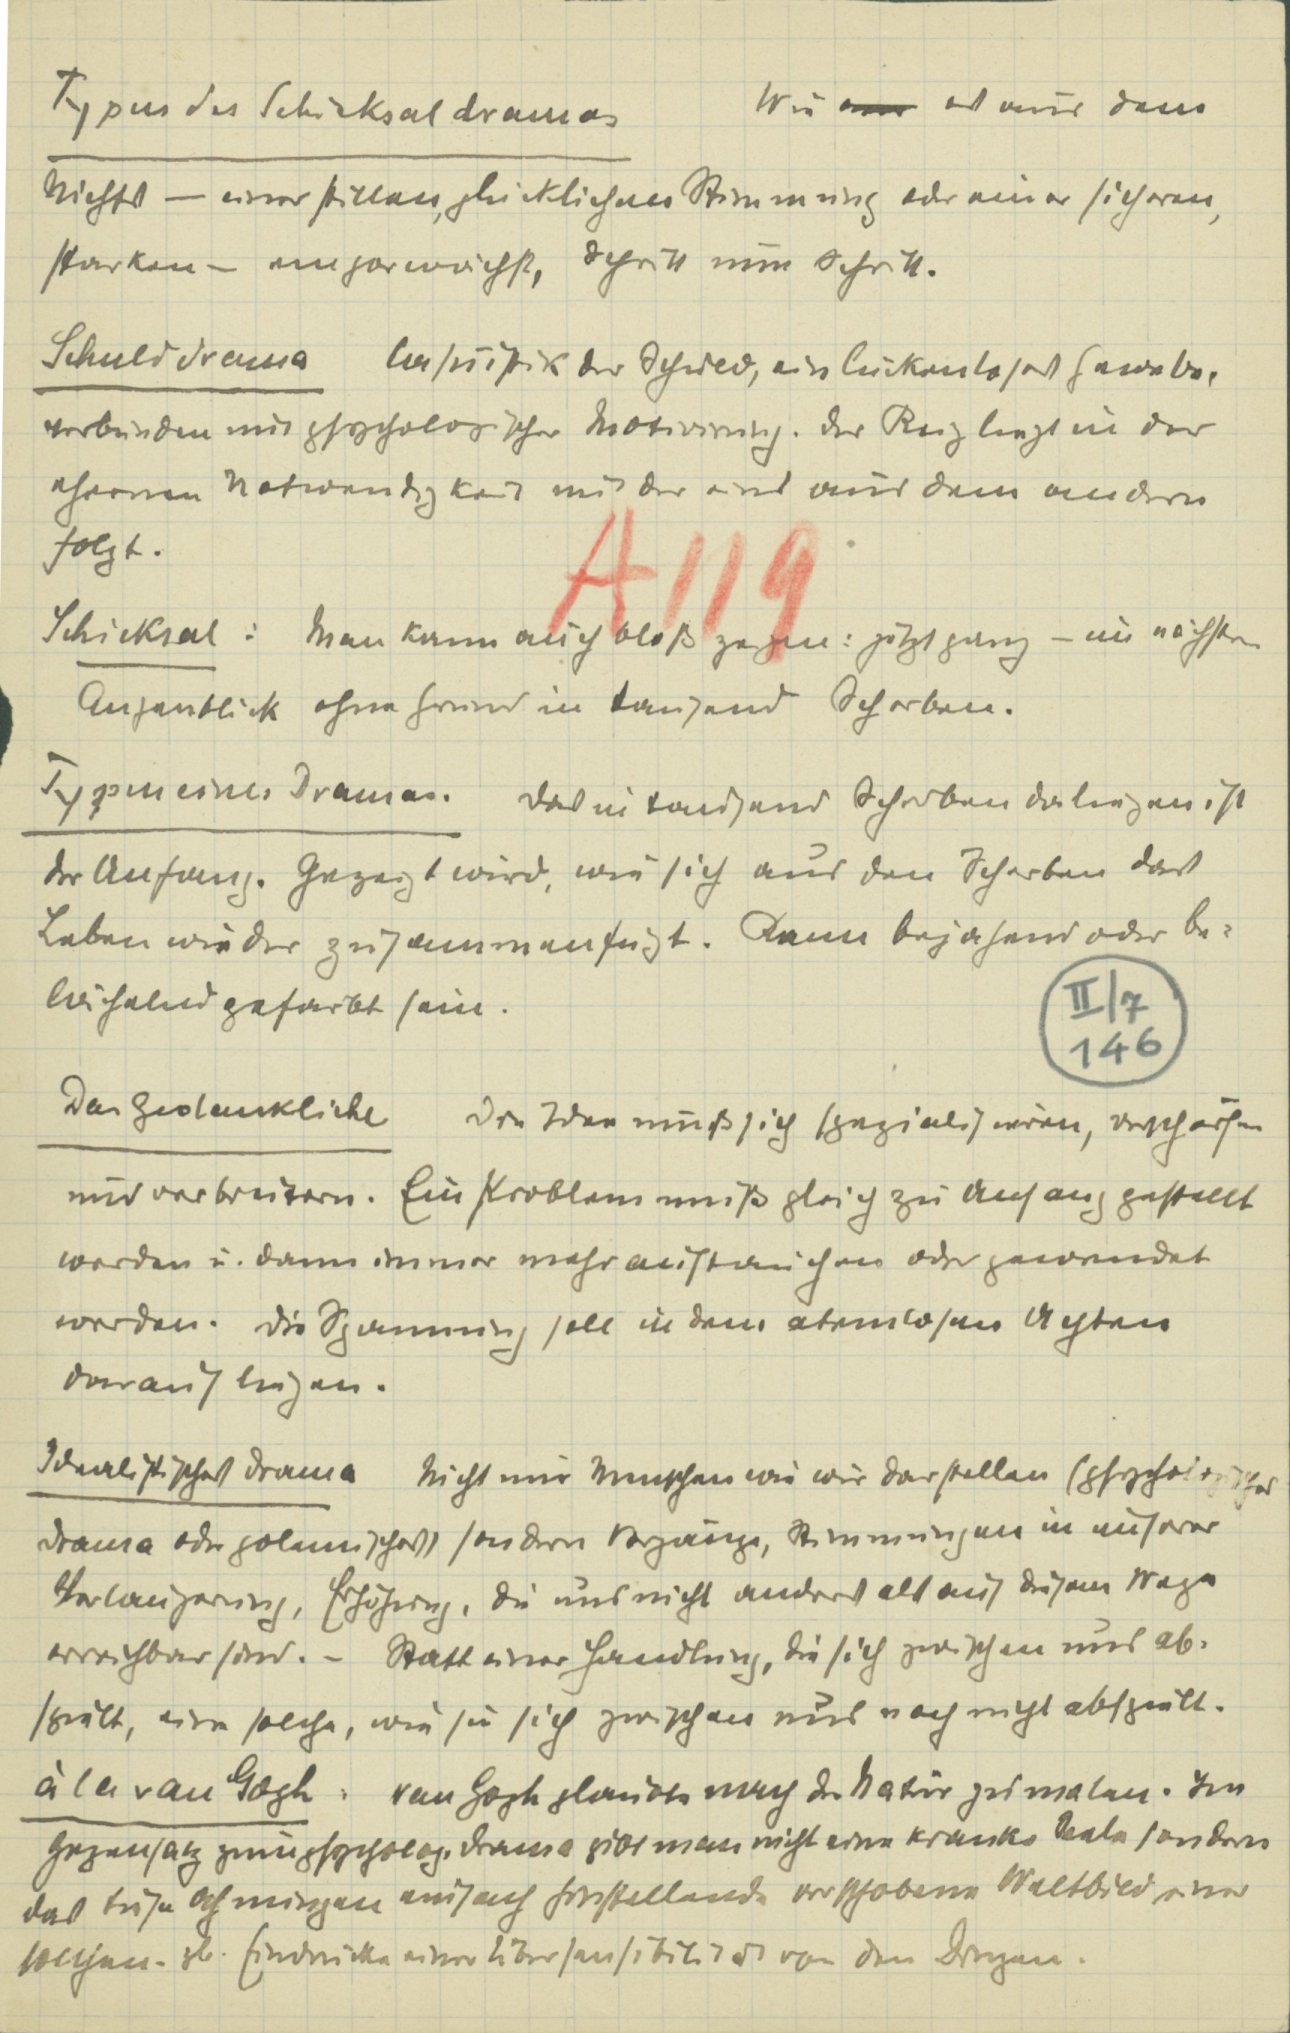 Typus des Schicksaldramas Wie es aus dem
Nichts — einer stillen, glücklichen Stimmung oder einer sicheren,
starken — emporwächst, Schritt um Schritt.
Schulddrama Casuistik der Schuld, ein lückenloses Gewebe,
verbunden mit psychologischer Motivirung. Der Reiz liegt in der
ehernen Notwendigkeit mit der eins aus dem andern
folgt.
A 119
Schicksal: Man kann auch bloß zeigen: jetzt ganz — im nächsten
Augenblick ohne Grund in tausend Scherben.
Typen eines Dramas. Das in tausend Scherben daliegen ist
der Anfang. Gezeigt wird, wie sich aus den Scherben das
Leben wieder zusammenfügt. Kann bejahend oder be=
lächelnd gefärbt sein.
II/7
146
Das Gedankliche Die Idee muß sich spezialisieren, verschärfen
und verbreitern. Ein Problem muß gleich zu Anfang gestellt
werden u. dann immer mehr auftauchen oder gewendet
werden. Die Spannung soll in dem atemlosen Achten
darauf liegen.
Idealistisches Drama Nicht nur Menschen wie wir darstellen (psychologisches
Drama oder polemisches) sondern Vorgänge, Stimmungen in unserer
Verlängerung, Erhöhung, die uns nicht anders als auf diesem Wege
erreichbar sind. – Statt einer Handlung, die sich zwischen uns ab-
spielt, eine solche, wie sie sich zwischen uns noch nicht abspielt.
à la van Gogh: van Gogh glaubte nach der Natur zu malen. Im
Gegensatz zum psycholog. Drama gibt man nicht eine kranke Seele sondern
das verschobene Weltbild einer
solchen. Eindrücke einer Übersensibilität von den Dingen.